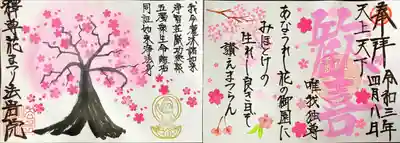 奉拝 令和三年四月八日
天上天下
唯我独尊
歓喜
あなうれし花の御園に
みほとけの
生れし良き日を
讃えまつらん
我今灌沐諸如来
浄智荘厳功徳聚
五濁衆生令離垢
同証如来浄法身
釋尊花まつり法岩院